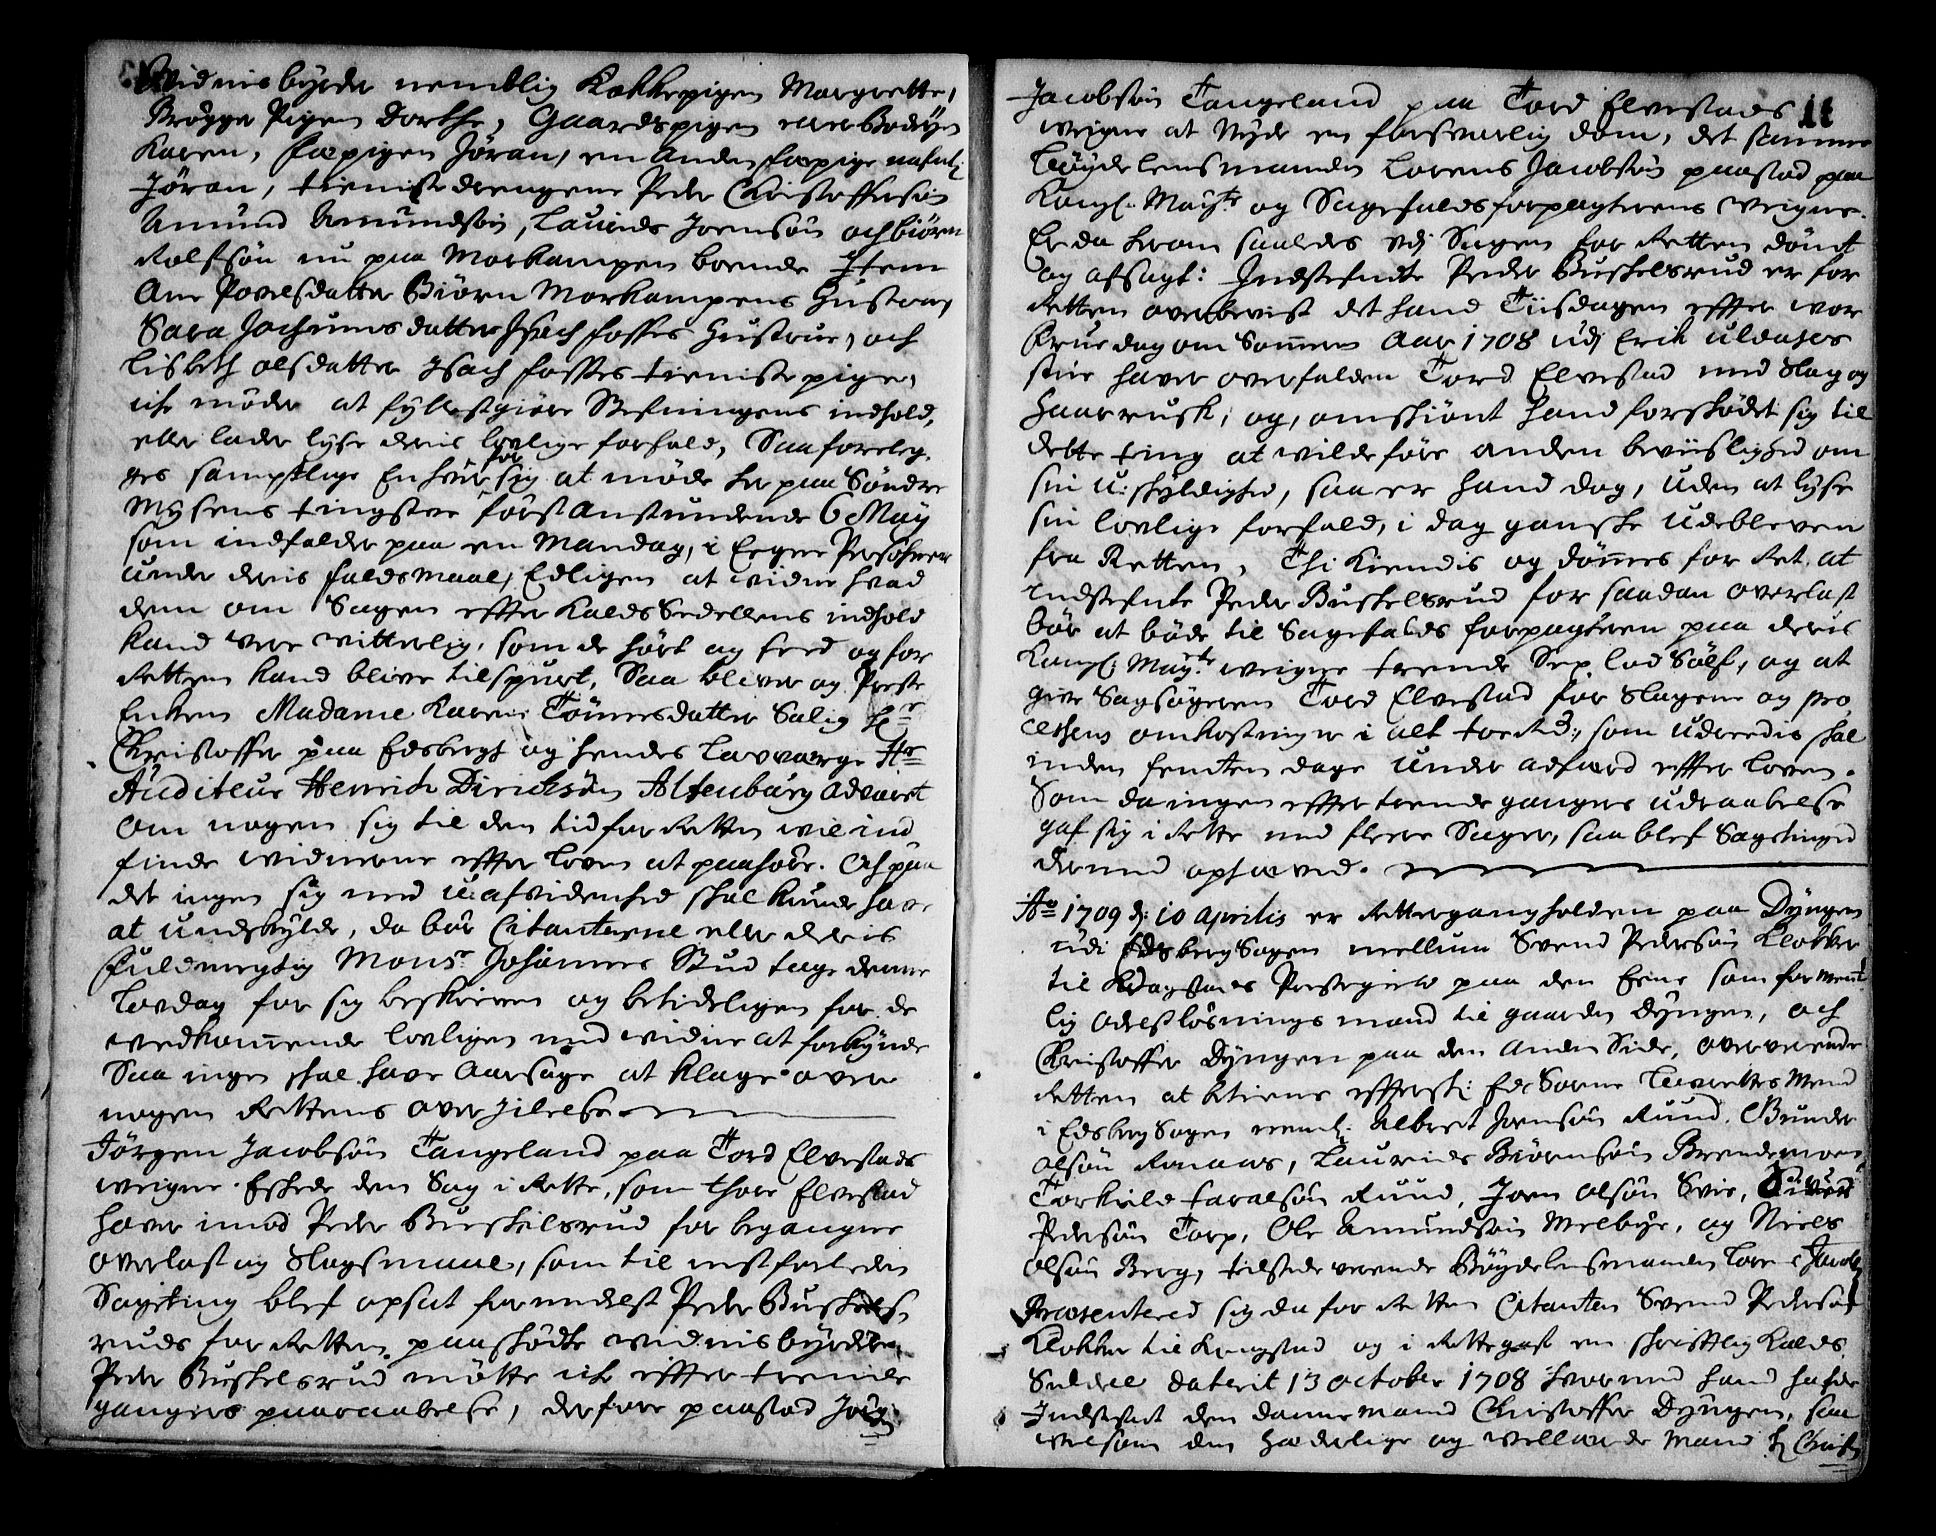 Widnisbyrder nemblig Kokkepigen Margrette,
Brøgge Pigen Dorthe, Gaardspigen eller Bodejen
Karen, Fæpigen Jøran, en Anden Fæpige nafnl:
Jøran, tieniste drengene Peder Christoffersøn
Amund Amundsøn, Laurids Joensøn och biørn
Rolfsøn nu paa Morkampen boende Item
Ane Povelsdatter Biørn Morkampens Hustrue,
Sara Jochumsdatter Isach Fosses Hustrue, och
Lisbeth olsdatter Isach Fosses tieniste pige,
iche møder at fyllestgiøre Stefningens indhold,
eller lader lyse deris lovlige forfald, Saa foreleg,
ges samptlige Enhver for sig at møde her paa Søndre
Mysens tingstue først Anstundende 6 Maÿ
som indfalder paa en Mandag, i Egne Persohner
under deris faldsmaal, Edligen at vidne hvad
dem om Sagen effter Kalds Sedellens indhold
kand vere vitterlig, som de hørt og seed og for
Retten kand blive tilspurt, Saa bliver og Preste
Enken Madame Karen Tønnesdatter Salig Hr
Christoffer paa Edsbergs og hendes Lavværge Hr
Auditeur Henrich Dirichsøn Altenburg Advaret
Om nogen sig til den tid for Retten vil ind
finde widnerne effter loven at paahøre. Och paa
det ingen sig med uafvidenhed skal kunde have
at undskylde, da bør Citanterne eller deris
Fuldmegtig Monsr Johannes Stud tage denne
Lovdag for sig beskreven og betideligen for de
vedkommende lovligen med vidne at forkynde
Saa ingen skal have Aarsage at klage over
nogen Rettens over jilelse
Jørgen Jacobsøn Tangeland paa Tord Elvestads
weigne Eskede den Sag i Rette, som Thore Elvestad
haver imod Peder Buskelsrud for begangne
overlast og Slagsmaal, som til nestforleden
Sageting blef opsat formedelst Peder Buskels,
ruds for Retten paaskødte widnisbyrder,
Peder Buskelsrud møtte iche effter trende
gangers paaraabelse, derfore paastod Jørg:
Jacobsøn Tangeland paa Tord Elvestads 11
weigne at Nyde en forsvarlig dom, det samme
bøyde Lensmanden Lorens Jacobsøn paastod paa
Kongl. Mayts og Sagefaldsforpagterens weigne.
Er da herom saaledes udj Sagen for Retten dømt
og afsagt: Indstefnte Peder Buskelsrud er for
Retten overbevist det hand Tiisdagen effter wor
Frue dag om Sommeren Aar 1708 udj Erik uldahls
stue haver overfalden Tord Elvestad med Slag og
Haarrusk, og, omskiønt hand forskødet sig til
dette ting at wilde føre anden beviislighed om
sin u-skyldighed, saa er hand dog, uden at lyse
sin lovlige forfald, i dag ganske udebleven
fra Retten, Thi kiendis og dømmes for Ret, at
indstefnte Peder Buskelsrud for saadan overlast
bør at bøde til Sagefalds forpagteren paa deris
Kongl: Mayts weigne trende Sex lod Sølf, og at
give Sagsøgeren Tord Elvestad for slagene og pro
cessens omkostninger i alt toe Rd:, som udredis skal
inden femten dage under adfærd effter loven.
Som da ingen effter trende gangers udraabelse
gaf sig i Rette med flere Sager, saa blef Sagetinged
dermed ophævved.
Ao 1709 d: 10 Aprilis er Rettergang holden paa Dyngen
udi Edsberg Sogen mellum Svend Pedersøn Klokker
til Prestegield paa den Eene som forment
lig Odelsløsnings mand til gaarden Dyngen, och
Christoffer Dyngen paa den Anden Side, oververende
Retten at betiene effterskr: Ed Sorne laurettes Mend
i Edsberg Sogen neml: Albret Joensøn Ruud, Gunder
olsøn Ramaas, Laurids Biørnsøn Brendemoen,
Torkild Haralsøn Ruud, Joen olsøn Svie, Siver
Pedersøn Torp, Ole Amundsøn Melbye, og Niels
Olsøn Berg, tilstede verende Bøyde Lensmanden Lore: Jacobs:
Præsentered sig da for Retten Citanten Svend Pedersøn
Klokker til Kragstad og i Rettegaf en skrifftlig Kalds
Seddel daterit 13 October 1708 hvormed hand hafde
Indstefnt den danne mand Christoffer Dyngen, saa
velsom den hæderlige og vellærde Mand Hr Christ